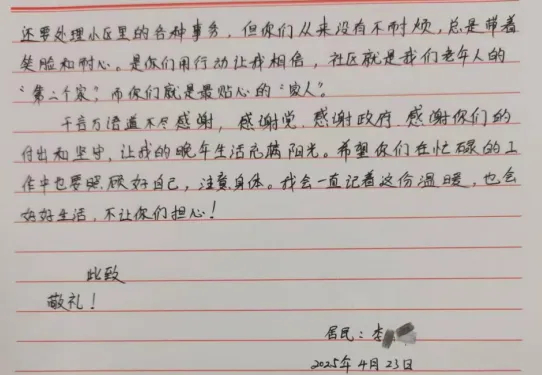 还要处理小区里的各种事务，但你们从来没有不耐烦，总是带着
笑脸和耐心。是你们用行动让我相信，社区就是我们老年人的
“第二个家”，而你们就是最贴心的“家人”。
千言万语道不尽感谢，感谢党、感谢政府、感谢你们的
付出和坚守，让我的晚年生活充满阳光。希望你们在忙碌的工
作中也要照顾好自己，注意身体。我会一直记着这份温暖，也会
好好生活，不让你们担心！
此致
敬礼！
居民：李
2025年4月23日